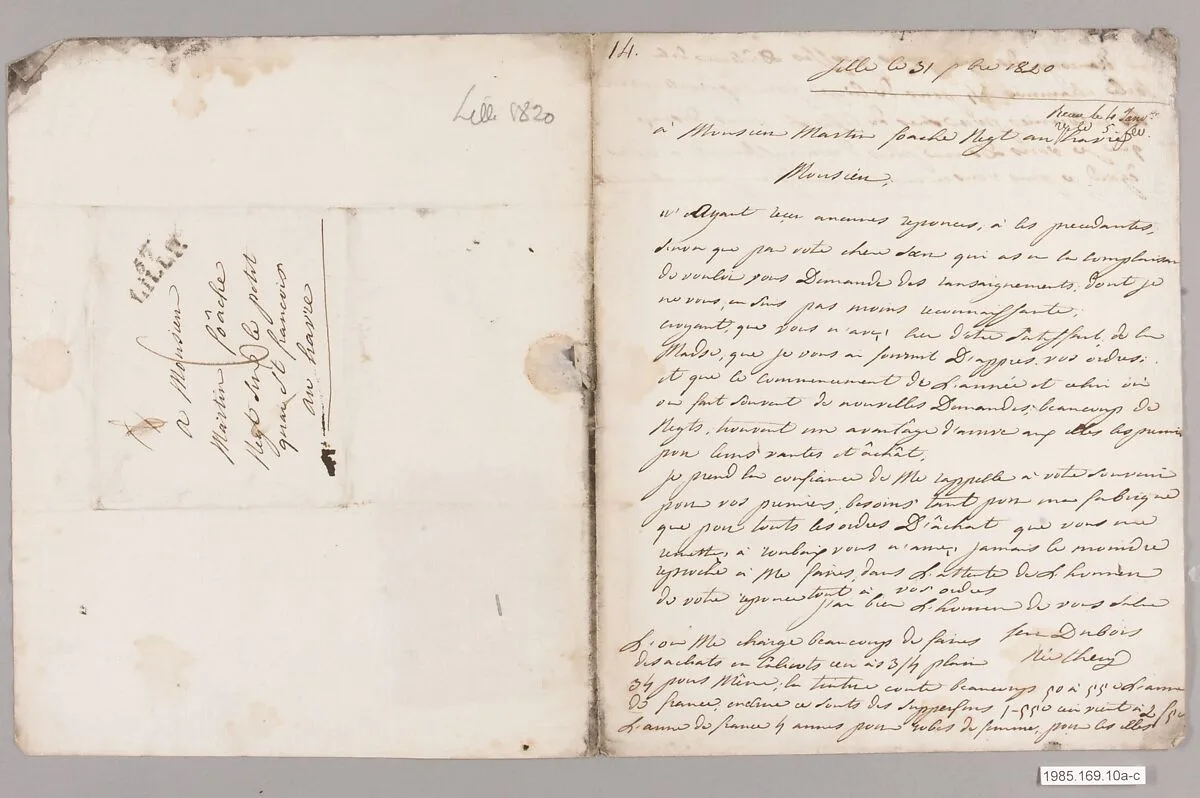 Lille 1820
57
LILLE
a Monsieur
Martin foache
Negt sur le petit
quai St francois
au havre
14.
Lille le 31 bre 1820
Recu le 4 Janv
a Monsieur Martin foache Negt au havre
Monsieur,
n'Ayant recu aucunes reponces, à les precedantes,
sinon que par votre cher qui as eu la complaisan
de vouloir vous Demande des ransaignements, dont je
ne vous en suis pas moins reconnaissante,
croyant, que vous n'avez lieu d'être satisfait, de la
Madse, que je vous ai fournit D'appres vos ordres,
et que le commencement de L'année et celui où
on fait souvent de nouvelles Demandes, beaucoup de
Negts, trouvent un avantage d'arrive aux elles les premie
pour leurs vantes et âchât.
Je prend la confiance de Me rappelle à votre souvenir
pour vos premiers besoins tant pour ma fabrique
que pour touts les ordres D'âchat que vous me
remettez, à roubaix vous n'avez jamais le moindre
reproche à Me faires, dans L'attente de L'honneur
de votre reponce tout à vos ordres
J'ai bien L'honneur de vous saluer
L'on Me charge beaucoup de faires
des achats en Calicots 3/4 plain
3/4 pour Même, la teinture coute beaucoup 50 à 55 c L'aune
de france, ce sonts des superfins 1-55 c vient à 2
L'aune de france 4 aunes pour robes de femme, pour les elles
Dubois
née
1985.169.10a-c